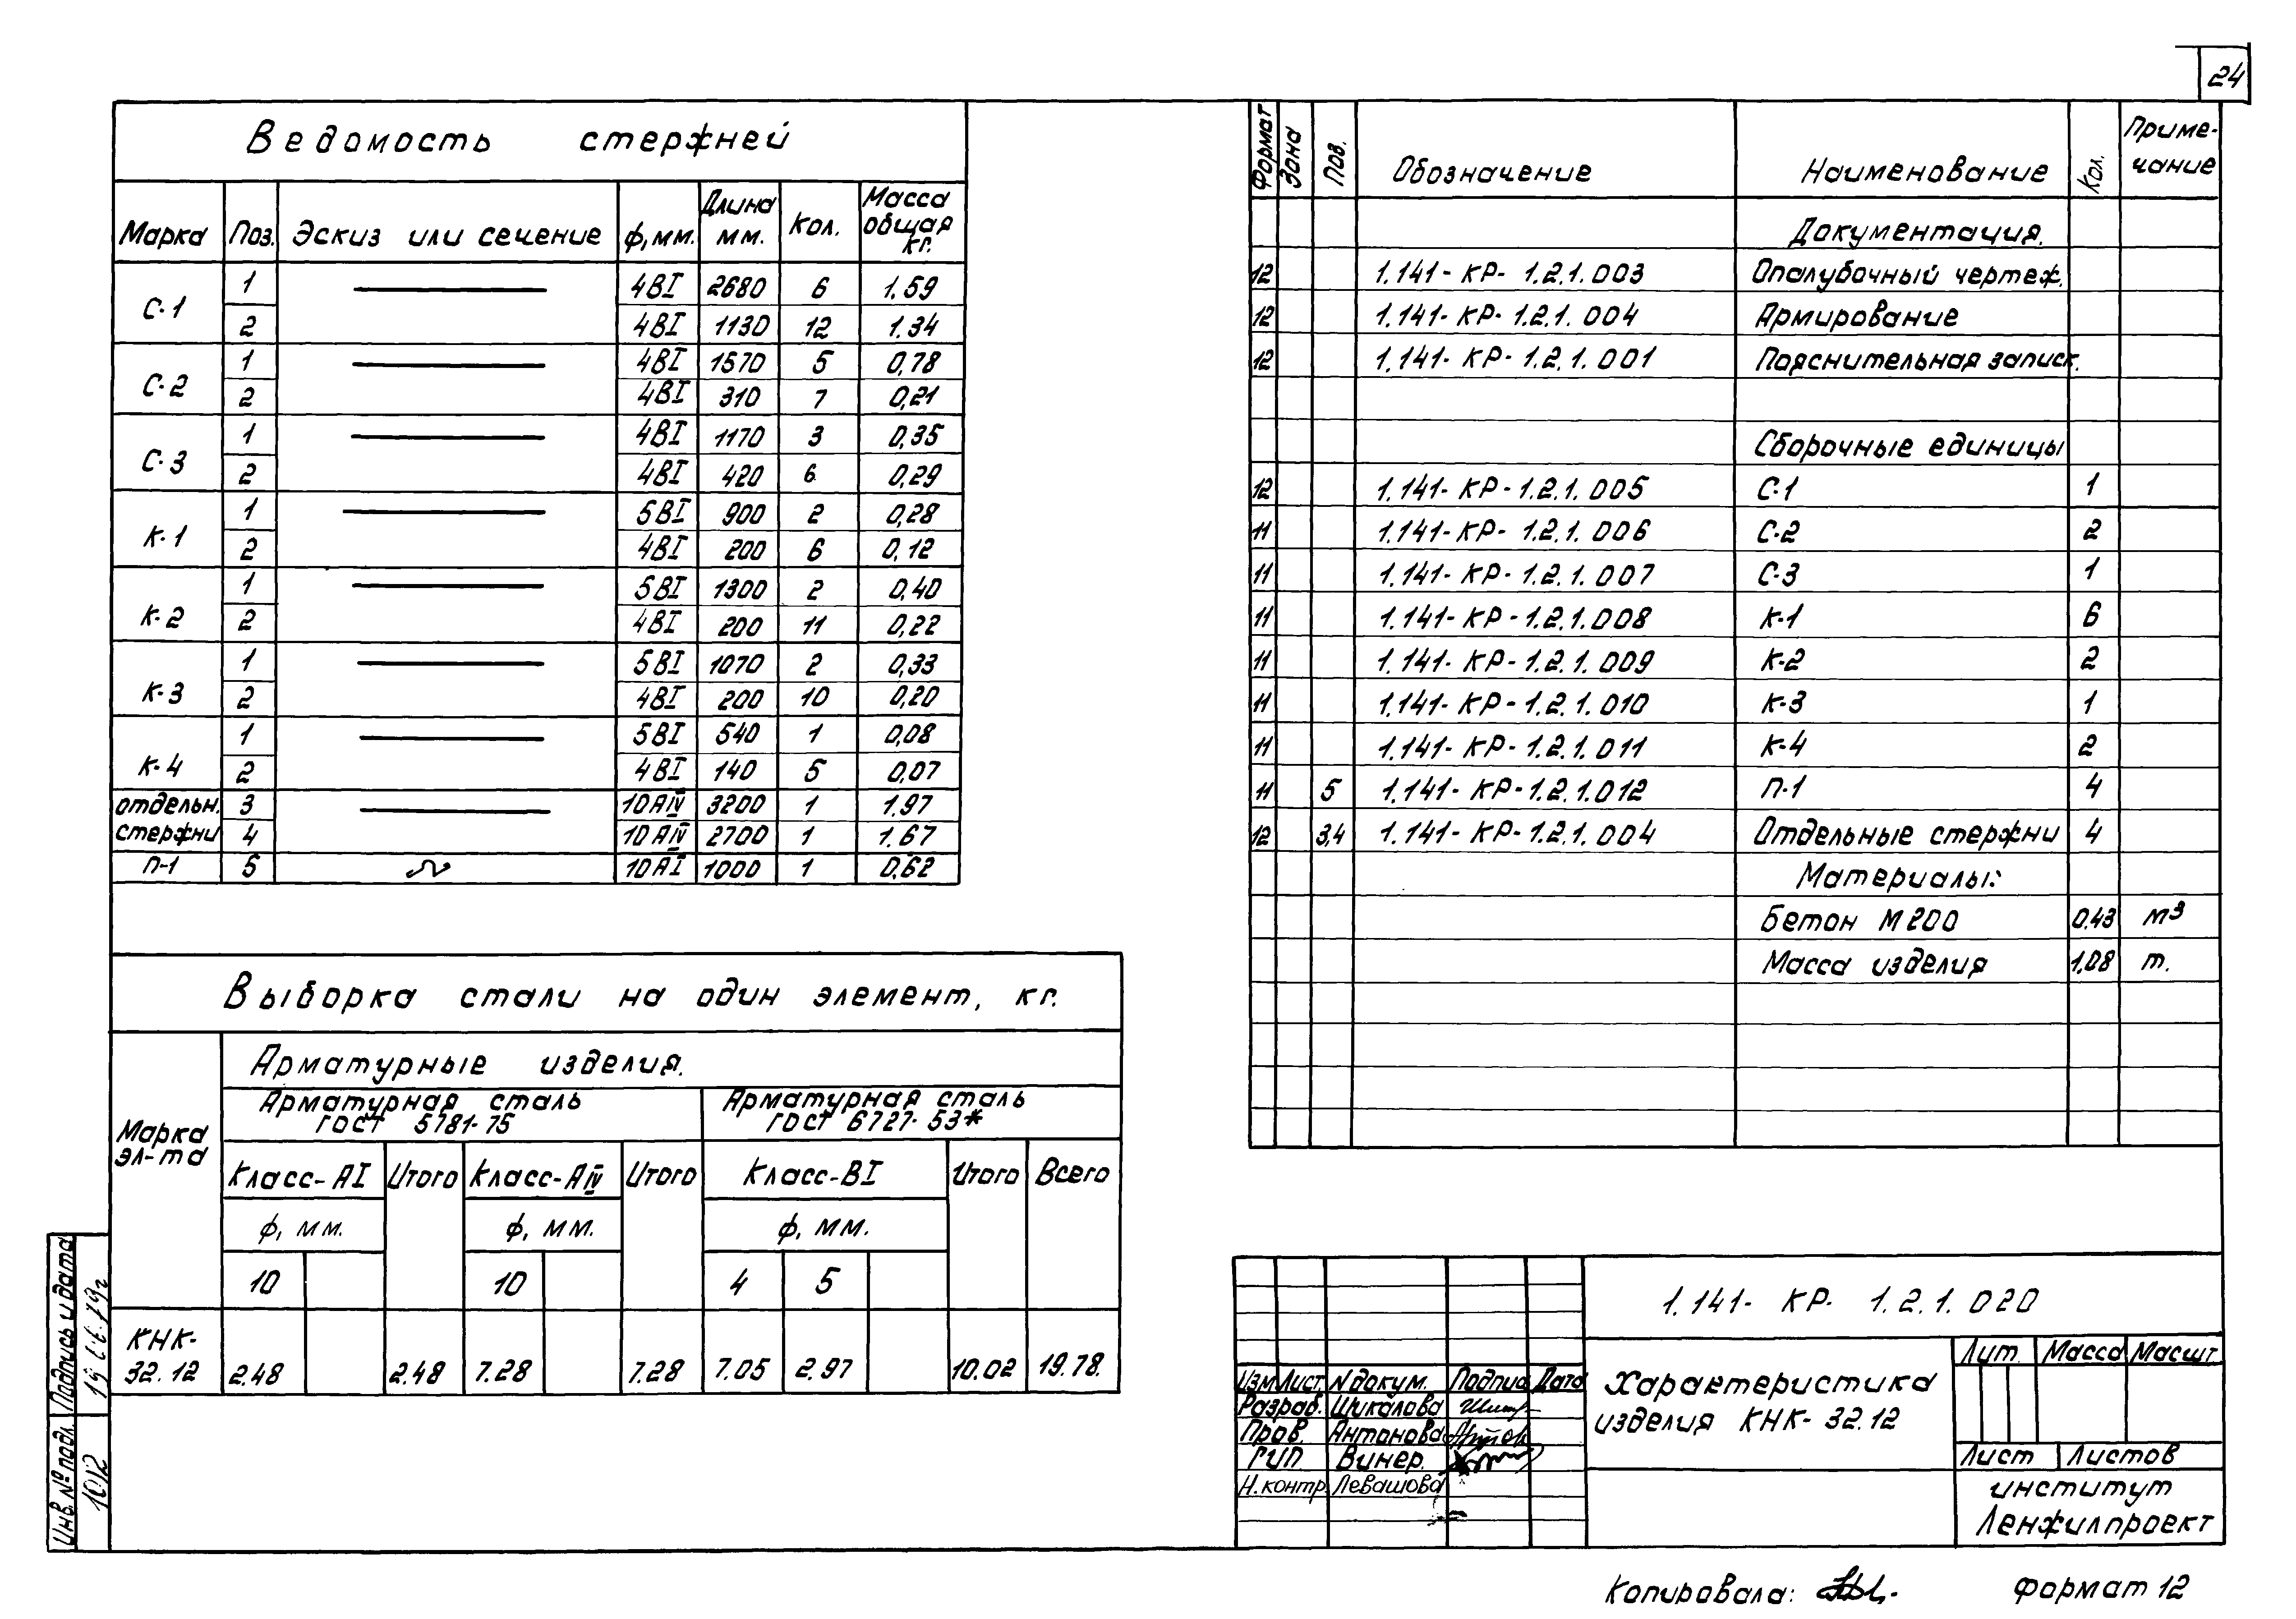 24
Ведомость стержней
Марка Поз. Эскиз или сечение ф,мм. Длина мм. Кол. Масса общая кг.
С-1 1 4ВI 2680 6 1.59
2 4ВI 1130 12 1.34
С-2 1 4ВI 1570 5 0,78
2 4ВI 310 7 0,21
С-3 1 4ВI 1170 3 0,35
2 4ВI 420 6 0,29
К-1 1 5ВI 900 2 0,28
2 4ВI 200 6 0,12
К-2 1 5ВI 1300 2 0,40
2 4ВI 200 11 0,22
К-3 1 5ВI 1070 2 0,33
2 4ВI 200 10 0,20
К-4 1 5ВI 540 1 0,08
2 4ВI 140 5 0,07
отдельн. 3 10АIV 3200 1 1.97
стержни 4 10АIV 2700 1 1.67
П-1 5 10АI 1000 1 0,62
Выборка стали на один элемент, кг.
Марка эл-та
Арматурные изделия.
Арматурная сталь ГОСТ 5781-75
Арматурная сталь ГОСТ 6727-53*
Класс-АI Итого Класс-АIV Итого Класс-ВI Итого Всего
ф, мм. ф, мм. ф, мм.
10 10 4 5
КНК-32.12 2.48 2.48 7.28 7.28 7.05 2.97 10.02 19.78.
Формат Зона Поз. Обозначение Наименование Кол. Примечание
Документация.
12 1.141-КР-1.2.1.003 Опалубочный чертеж.
12 1.141-КР-1.2.1.004 Армирование
12 1.141-КР-1.2.1.001 Пояснительная записк.
Сборочные единицы
12 1.141-КР-1.2.1.005 С-1 1
11 1.141-КР-1.2.1.006 С-2 2
11 1.141-КР-1.2.1.007 С-3 1
11 1.141-КР-1.2.1.008 К-1 6
11 1.141-КР-1.2.1.009 К-2 2
11 1.141-КР-1.2.1.010 К-3 1
11 1.141-КР-1.2.1.011 К-4 2
11 5 1.141-КР-1.2.1.012 П-1 4
12 3,4 1.141-КР-1.2.1.004 Отдельные стержни 4
Материалы:
Бетон М200 0.43 м³
Масса изделия 1,08 т.
1.141- КР- 1.2.1.020
Изм Лист N докум. Подпис Дата
Разраб. Шикалова
Пров. Антонова
ГИП Винер.
Н.контр. Левашова
Характеристика
изделия КНК-32.12
Лит. Масса Масшт.
Лист Листов
институт
Ленжилпроект
Копировала:
Формат 12
Инв. № подл. Подпись и дата
1012